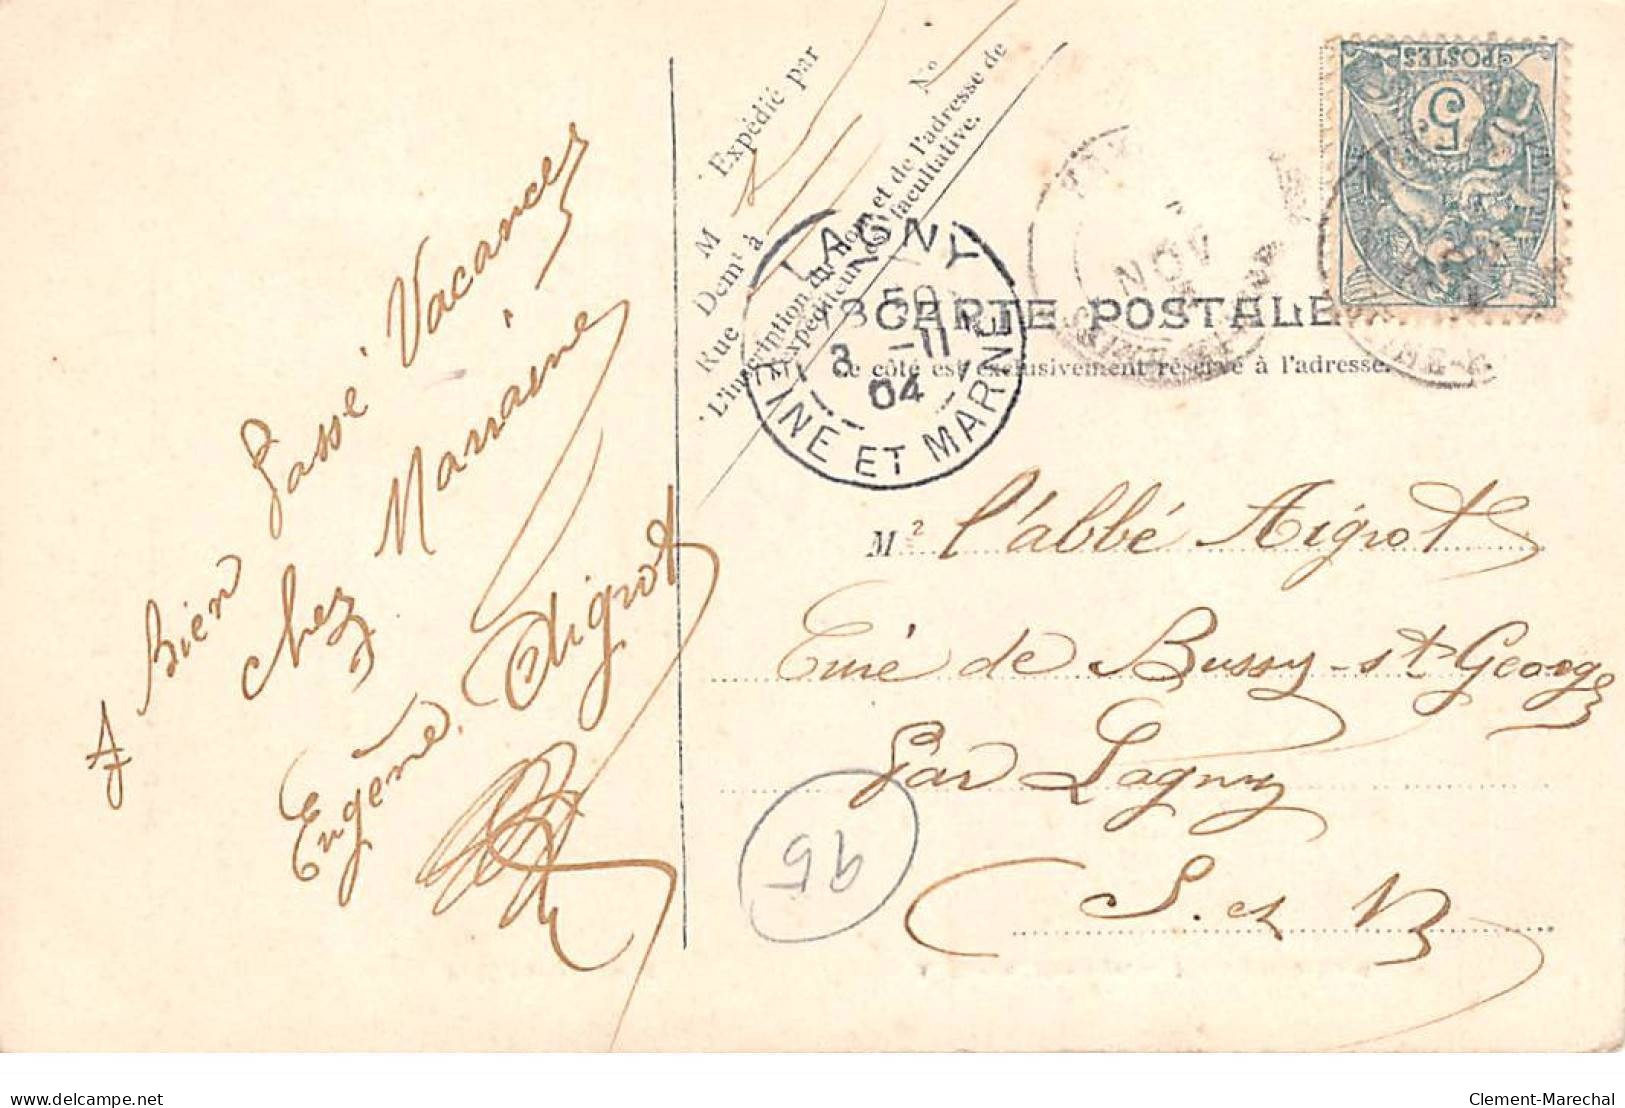 A bien passé Vacances
chez Marraine
Eugène Aigrot
Expédié par
M
Demt à
Rue
No
L'inscription du nom et de l'adresse de
l'expéditeur est facultative.
LAGNY
3 -11
04
SEINE ET MARNE
NOV
POSTES
5
CARTE POSTALE
Ce côté est exclusivement réservé à l'adresse.
M l'abbé Aigrot
Curé de Bussy-St-Georges
Par Lagny
S. et M
95
delcampe.net
Clement-Marechal